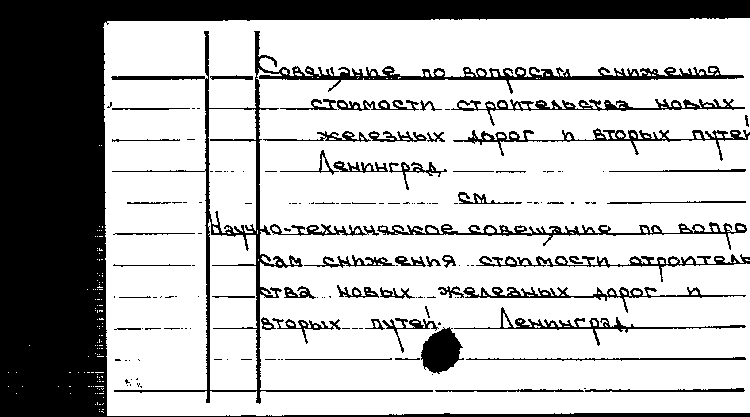 Совещание по вопросам снижения
стоимости строительства новых
железных дорог и вторых путей
Ленинград.
см.
Научно-техническое совещание по вопро
сам снижения стоимости строитель
ства новых железных дорог и
вторых путей. Ленинград.